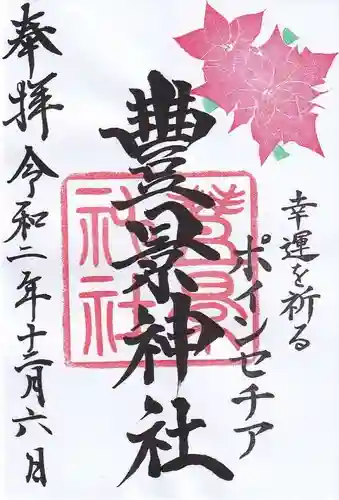 幸運を祈る
ポインセチア
豊景神社
奉拝
令和二年十二月六日